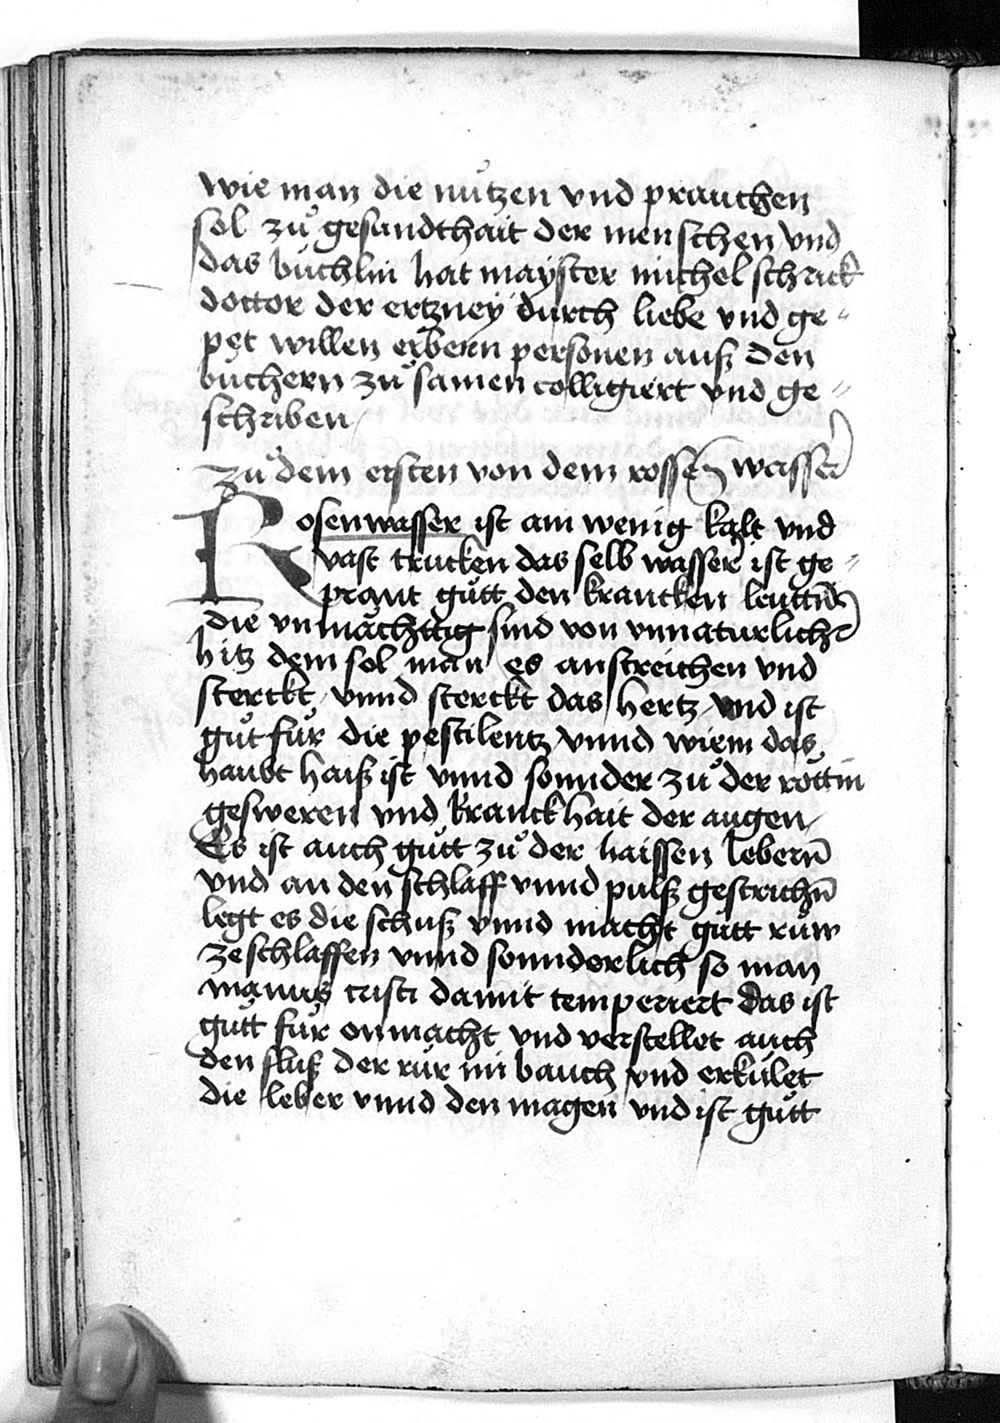 wie man die nutzen vnd prauchen
sol zuͦ gesundthait der menschen vnd
das buchlin hat mayster michel schrick
doctor der ertzney durch liebe vnd ge-
pet willen erbern personen auß den
buchern zuͦ samen colligiert vnd ge-
schriben
Zuͦ dem ersten von dem rossen wasser
Rosenwasser ist ain wenig kalt vnd
vast trucken das selb wasser ist ge-
prant guͦtt den krancken leuttñ
die vnmachttig sind von vnnaturlicher
hitz dem sol man es anstreichen vnd
sterckt vnnd sterckt das hertz vnd ist
guͦt fuͦr die pestilentz vnnd wiem das
haubt haiß ist vnnd sonnder zuͦ der rottin
gesweren vnd kranckhait der augen
Es ist auch guͦtt zuͦ der haissen leberñ
vnd an den schlaff vnnd pulß gestrichñ
legt es die schuß vnnd macht guͦtt ruͦw
ze schlaffen vnnd sonnderlich so man
manus cristi damit temperiert das ist
guͦtt fuͦr onmacht vnd verstellet auch
den fluß der ruͦr im bauch vnd erkulet
die leber vnnd den magen vnd ist guͦtt